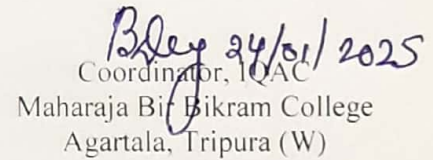 BDey 24/01/2025
Coordinator, IQAC
Maharaja Bir Bikram College
Agartala, Tripura (W)